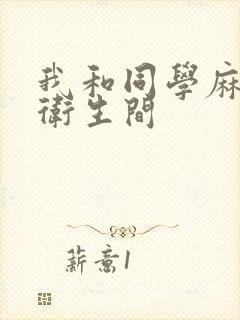 我和同學麻
衛生間
薪意1